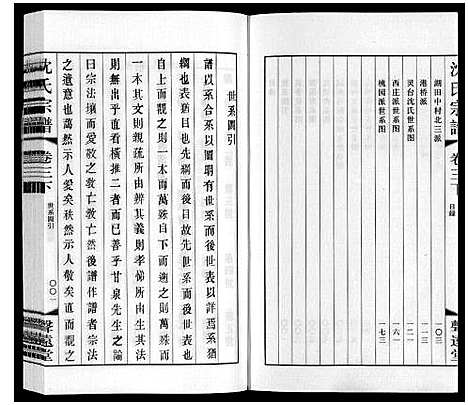 沈氏宗譜
卷三下
目錄
聲遠堂
湖田中村北三派
一〇三
港桥派
一一三
灵台沈氏世系图
一二一
西庄派世系图
一六一
桃园派世系图
一七三
世系圖引
譜以系合系以圖綴系以詳爲系猶
綱也表猶目也故先世系而後世表
自上而觀之則一本而萬殊自下而
一本其文則親疏所由辨其義則孝悌所由
興而能爲此看横推二者而已善乎甘泉先生之論
曰宗法壞而愛敬之教亡教亡然後譜作譜者宗法
之遺意也藹然示人愛矣秩然示人敬矣直而
沈氏宗譜
卷三下
世系圖引
〇〇一
聲遠堂